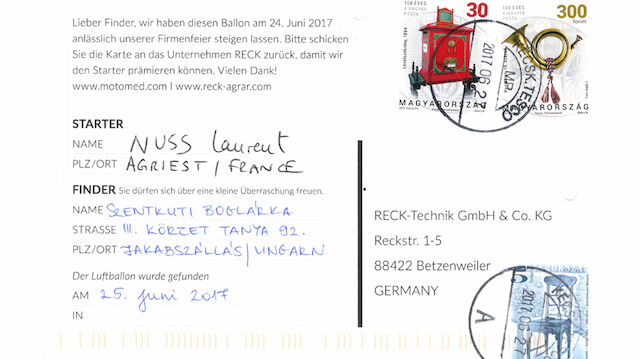 Lieber Finder, wir haben diesen Ballon am 24. Juni 2017
anlässlich unserer Firmenfeier steigen lassen. Bitte schicken
Sie die Karte an das Unternehmen RECK zurück, damit wir
den Starter prämieren können. Vielen Dank!
www.motomed.com I www.reck-agrar.com
30
150 ÉVES
A MAGYAR
POSTA
MAGYARORSZÁG
300
forint
MAGYARORSZÁG
2017.06.27
KECSK. TESCO
STARTER
NAME NUSS Laurent
PLZ/ORT AGRIEST / FRANCE
FINDER Sie dürfen sich über eine kleine Überraschung freuen.
NAME SZENTKUTI BOGLÁRKA
STRASSE III. KÖRZET TANYA 92.
PLZ/ORT JAKABSZÁLLÁS / UNGARN
Der Luftballon wurde gefunden
AM 25. Juni 2017
IN
RECK-Technik GmbH & Co. KG
Reckstr. 1-5
88422 Betzenweiler
GERMANY
2017.06.27
A